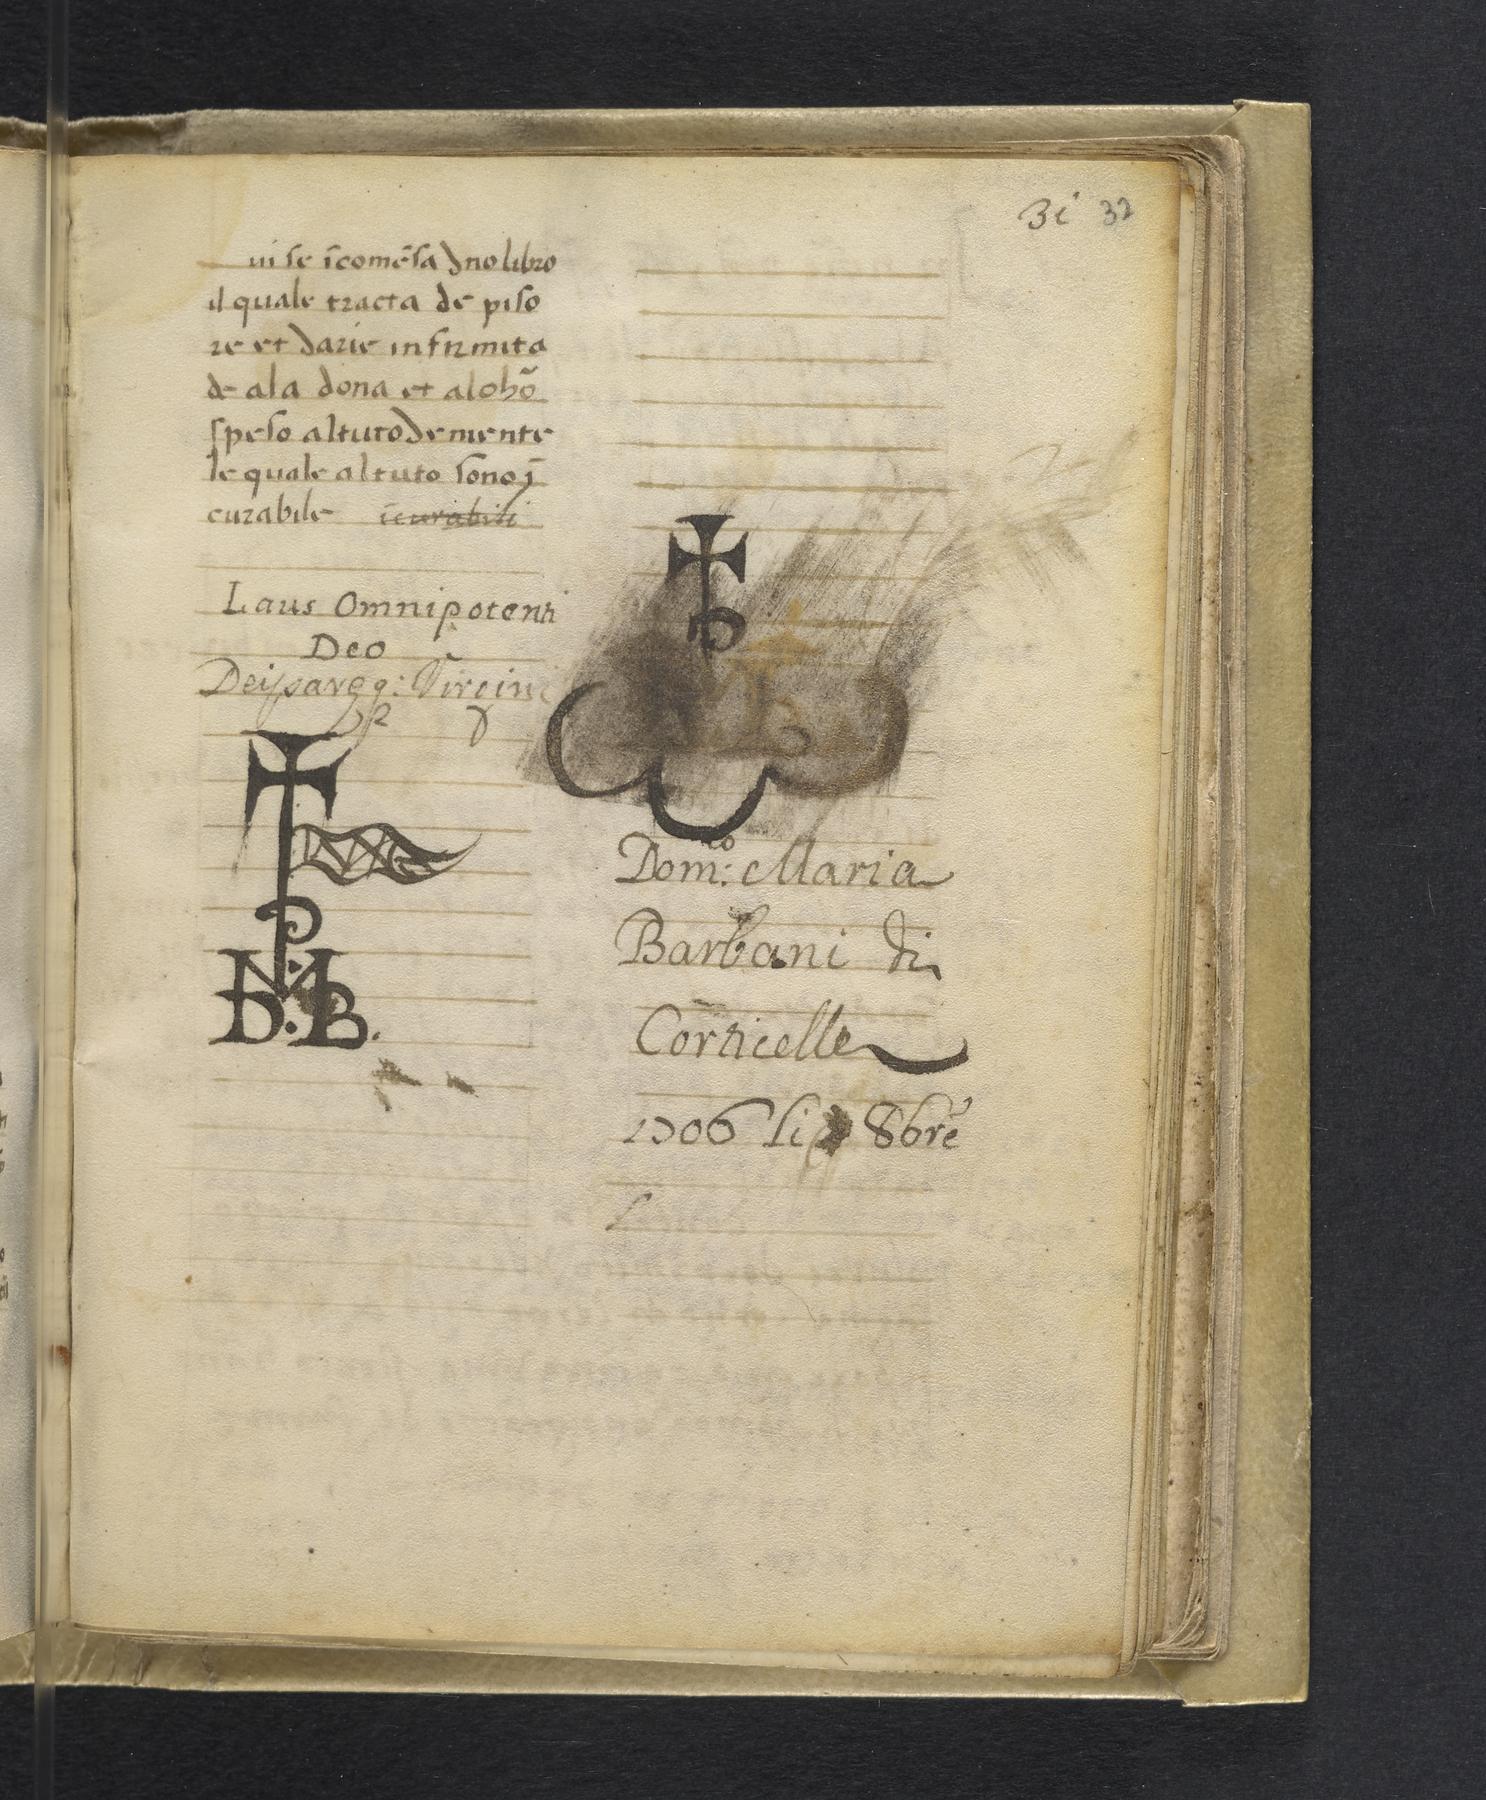 3i 32
ui se ĩcomẽsa dno libro
il quale tracta de piso
re et darie infirmita
de ala dona et alohõ
speso altuto demente
le quale altuto sono ĩ
curabile ĩcurabili
Laus Omnipotenti
Deo
Deiparęq: Virgini
P
D. M. B.
P
Dom:co Maria
Barbani di
Corticelle
1706 li 8bre